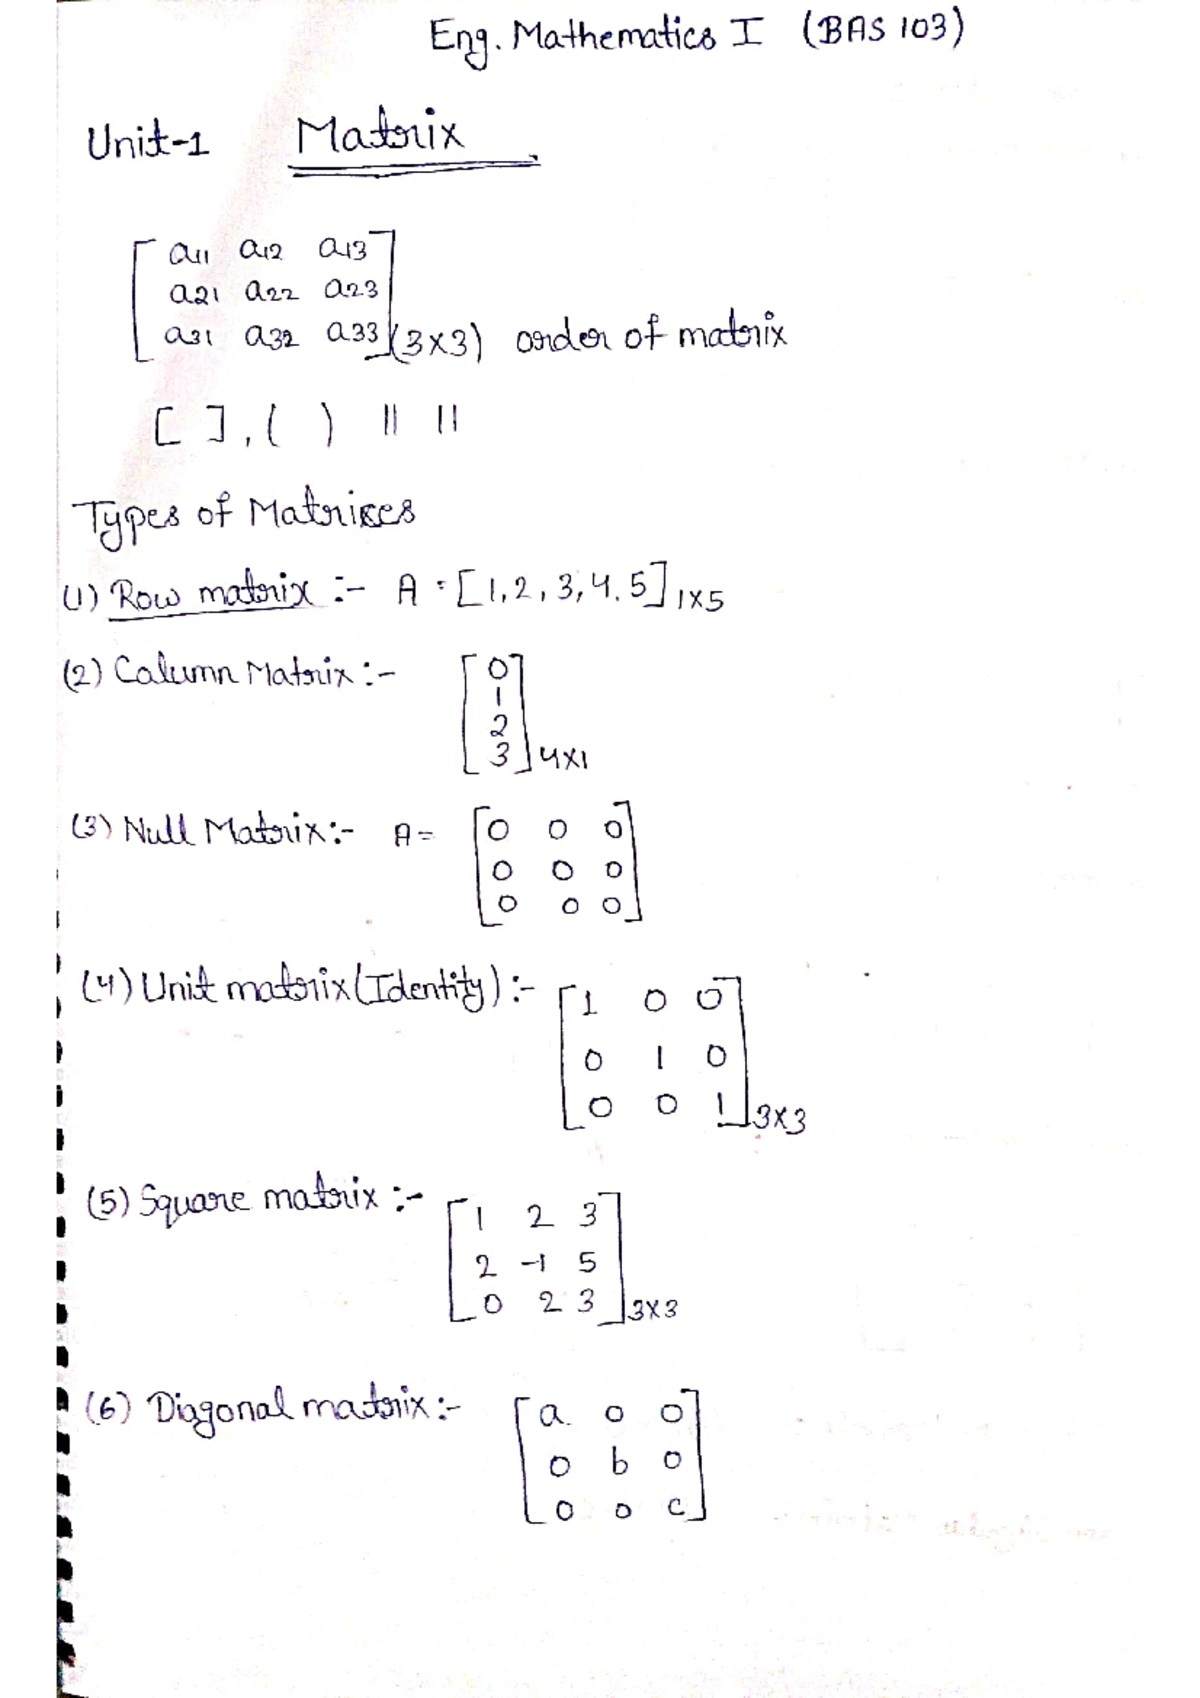 Eng. Mathematics I (BAS 103)
Unit-1 Matrix
a11 a12 a13
a21 a22 a23
a31 a32 a33 (3×3) order of matrix
[ ], ( ) || ||
Types of Matrices
(1) Row matrix :- A = [1, 2, 3, 4, 5] 1×5
(2) Calumn Matrix :- 0
1
2
3 4×1
(3) Null Matrix :- A = 0 0 0
0 0 0
0 0 0
(4) Unit matrix (Identity) :- 1 0 0
0 1 0
0 0 1 3×3
(5) Square matrix :- 1 2 3
2 -1 5
0 2 3 3×3
(6) Diagonal matrix :- a 0 0
0 b 0
0 0 c